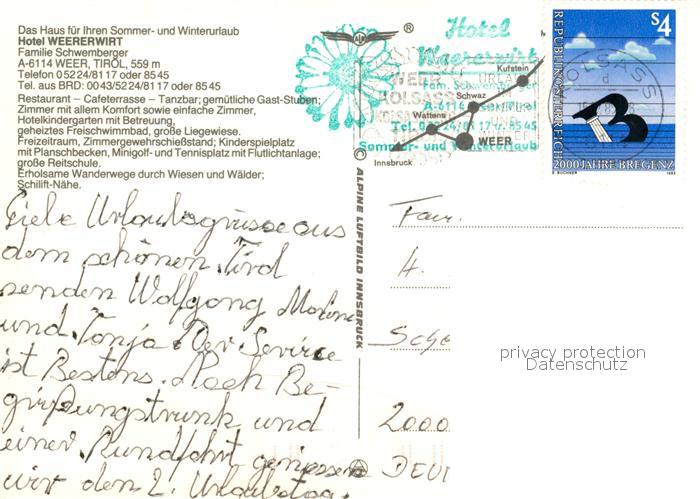 Das Haus für Ihren Sommer- und Winterurlaub
Hotel WEERERWIRT
Familie Schwemberger
A-6114 WEER, TIROL, 559 m
Telefon 05224/8117 oder 8545
Tel. aus BRD: 0043/5224/8117 oder 8545
Restaurant – Cafeterrasse – Tanzbar; gemütliche Gast-Stuben;
Zimmer mit allem Komfort sowie einfache Zimmer,
Hotelkindergarten mit Betreuung,
geheiztes Freischwimmbad, große Liegewiese.
Freizeitraum, Zimmergewehrschießstand; Kinderspielplatz
mit Planschbecken, Minigolf- und Tennisplatz mit Flutlichtanlage;
große Reitschule.
Erholsame Wanderwege durch Wiesen und Wälder;
Schilift-Nähe.
Liebe Urlaubsgrüsse aus
dem schönen Tirol
senden Wolfgang
und Tonja. Der Service
ist Bestens. Nach Be-
grüßungstrunk und
einer Rundfahrt geniessen
wir den 2. Urlaubstag.
ALP
®
Hotel
Weererwirt
Fam. Schwemberger
A-6114
Tel. 05224/8117 u. 8545
Sommer- und Winterurlaub
WEER
KOLSASS
URLAUB
UND
Kufstein
Schwaz
Wattens
WEER
Innsbruck
© ALPINE LUFTBILD INNSBRUCK
KOLSASS
S4
REPUBLIK ÖSTERREICH
2000 JAHRE BREGENZ
1985
Fam.
H.
2000
privacy protection
Datenschutz